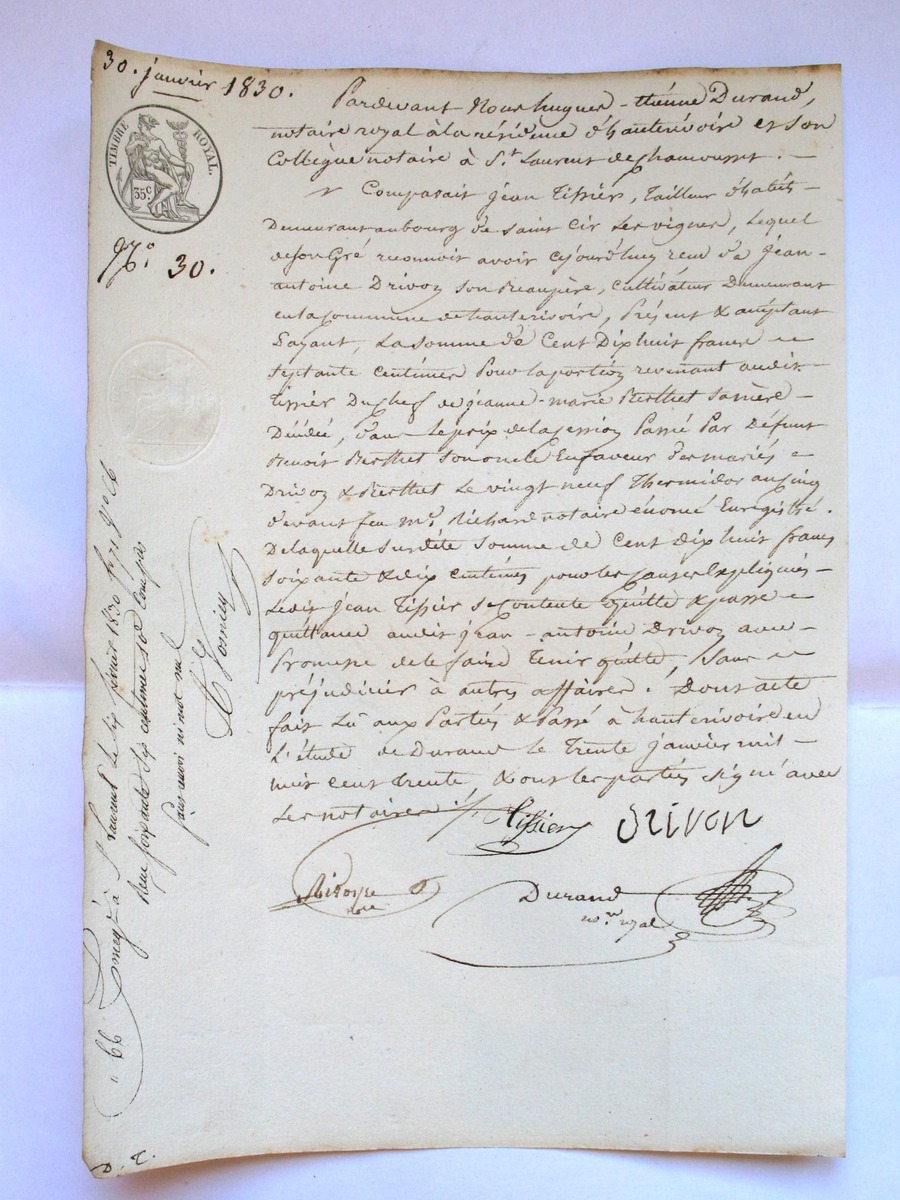 30. janvier 1830.
TIMBRE ROYAL
35c.
N.o 30.
Pardevant Nous hugues-étienne Durand,
notaire royal à la résidence d'hauterivoire et son
Collègue notaire à S.t Laurent de Chamousset. —
Comparait jean Tissier, Tailleur d'habits —
Demeurant au bourg de saint Cir Les vignes, Lequel
de son Gré reconnoit avoir cejourd'huy recu de jean-
antoine Drivon son Beaupère, cultivateur Demeurant
en la Commune de hauterivoire, Présent & acceptant
Payant, La somme de Cent Dix huit francs
septante centimes Pour la portion revenant audit
Tissier Du chef de jeanne-marie Berthet Sa mère —
Décédée, dans le prix de la cession Passé Par Défunt
Benoit Berthet Son oncle En faveur Des mariés
Drivon & Berthet Le vingt neuf Thermidor an cinq
devant feu m.e Richard notaire énoncé Enregistré.
De laquelle Susdite Somme de Cent dix huit francs
soixante & dix centimes pour les Causes Expliquées —
Ledit jean Tissier se Contente Quitte & passe
quittance audit jean-antoine Drivon avec
Promesse de le faire Tenir quitte, Sans
préjudicier à autres affaires. Dont acte
fait Lu aux Parties & Passé à hauterivoire en
L'étude de Durand le Trente janvier mil —
huit cent trente, & ont les parties signé avec
Les notaires.
Tissier Drivon
Durand
no.re royal
à S.t Laurent le six février 1830
soixante six centimes
mot nul
D. T.